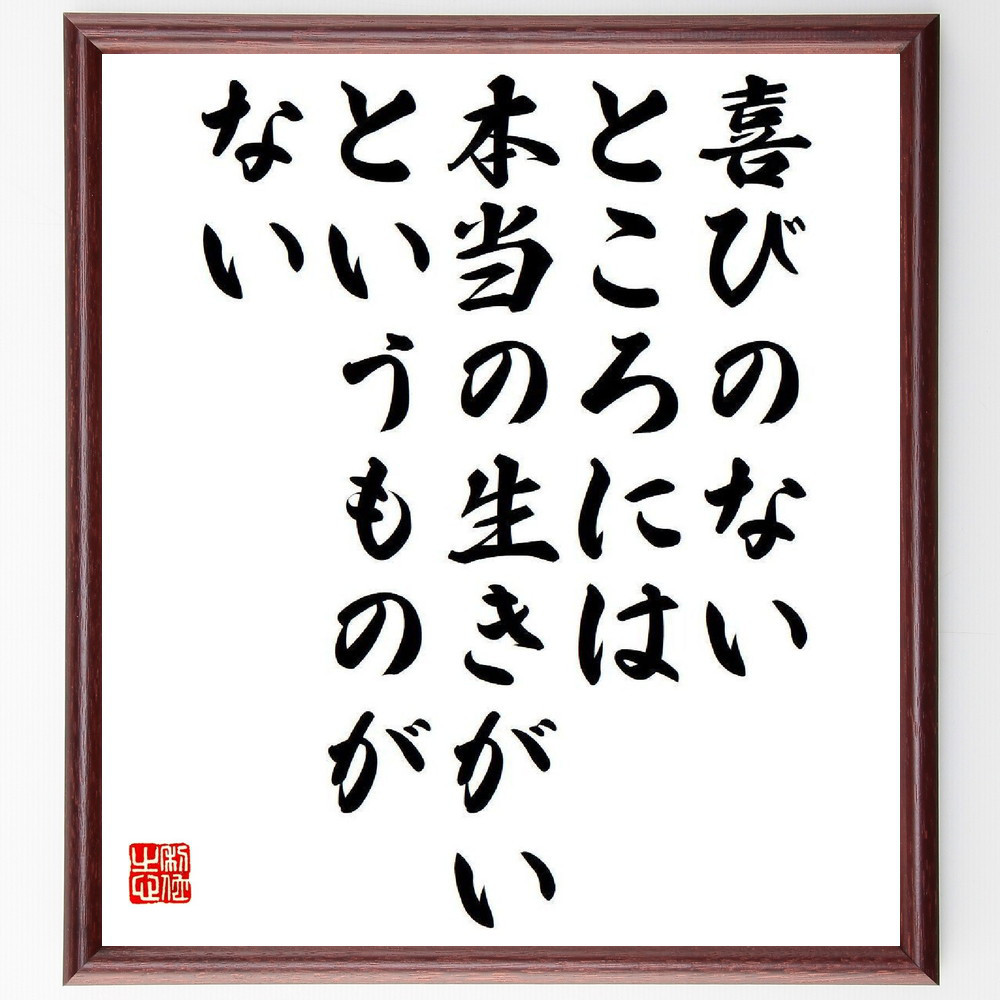 喜びのない
ところには
本当の生きがい
というものが
ない